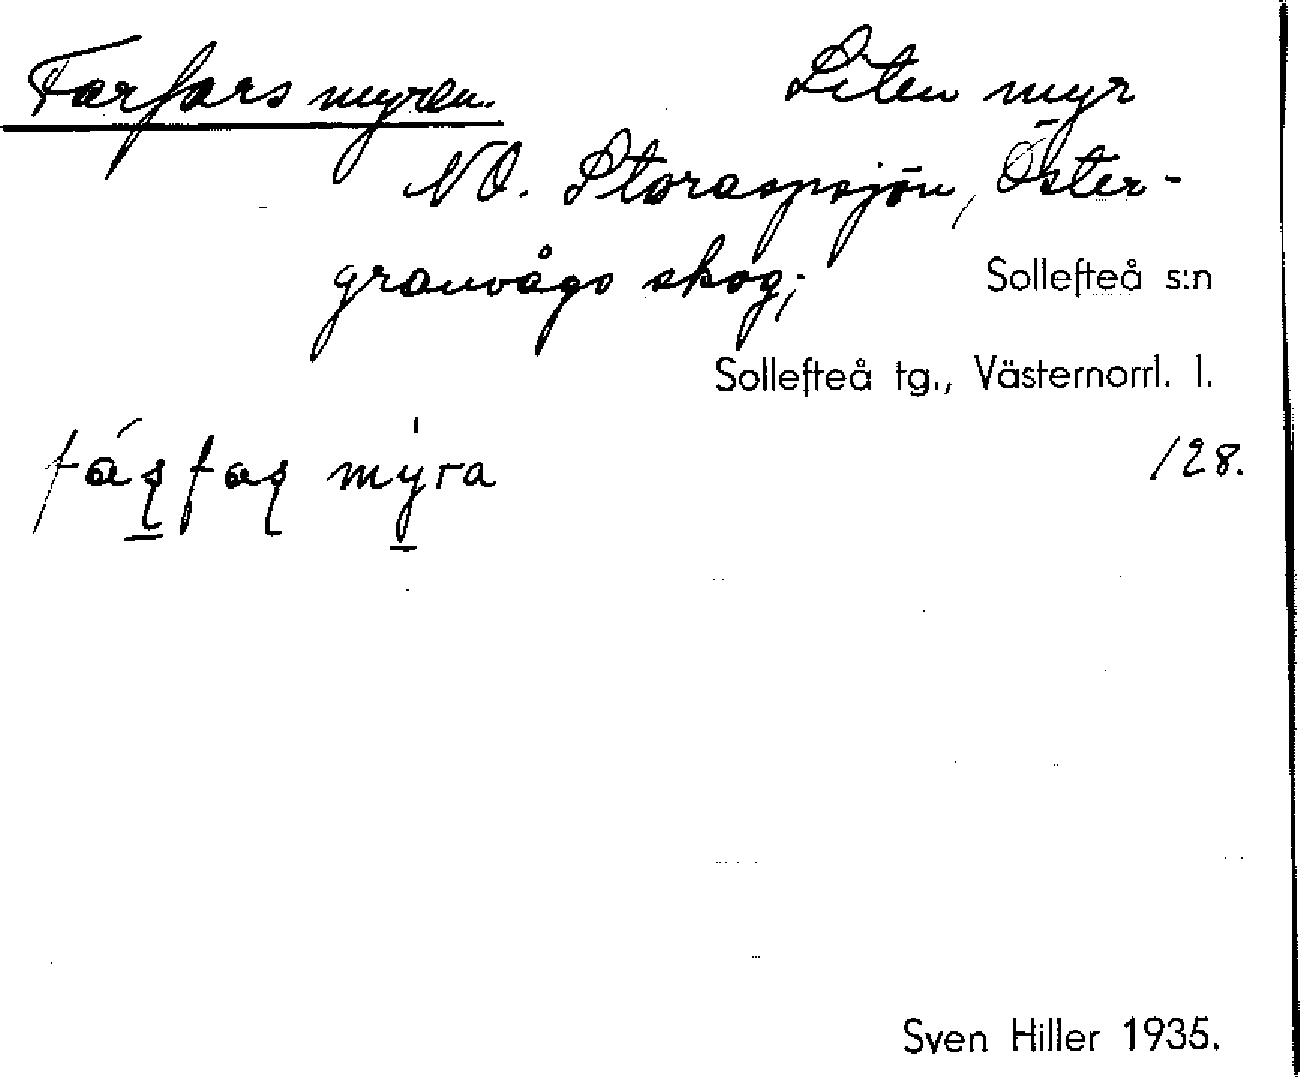 Farfars myren. Liten myr
NO. Storaspsjön, Öster-
granvågs skog; Sollefteå s:n
Sollefteå tg., Västernorrl. l.
/28.
Sven Hiller 1935.